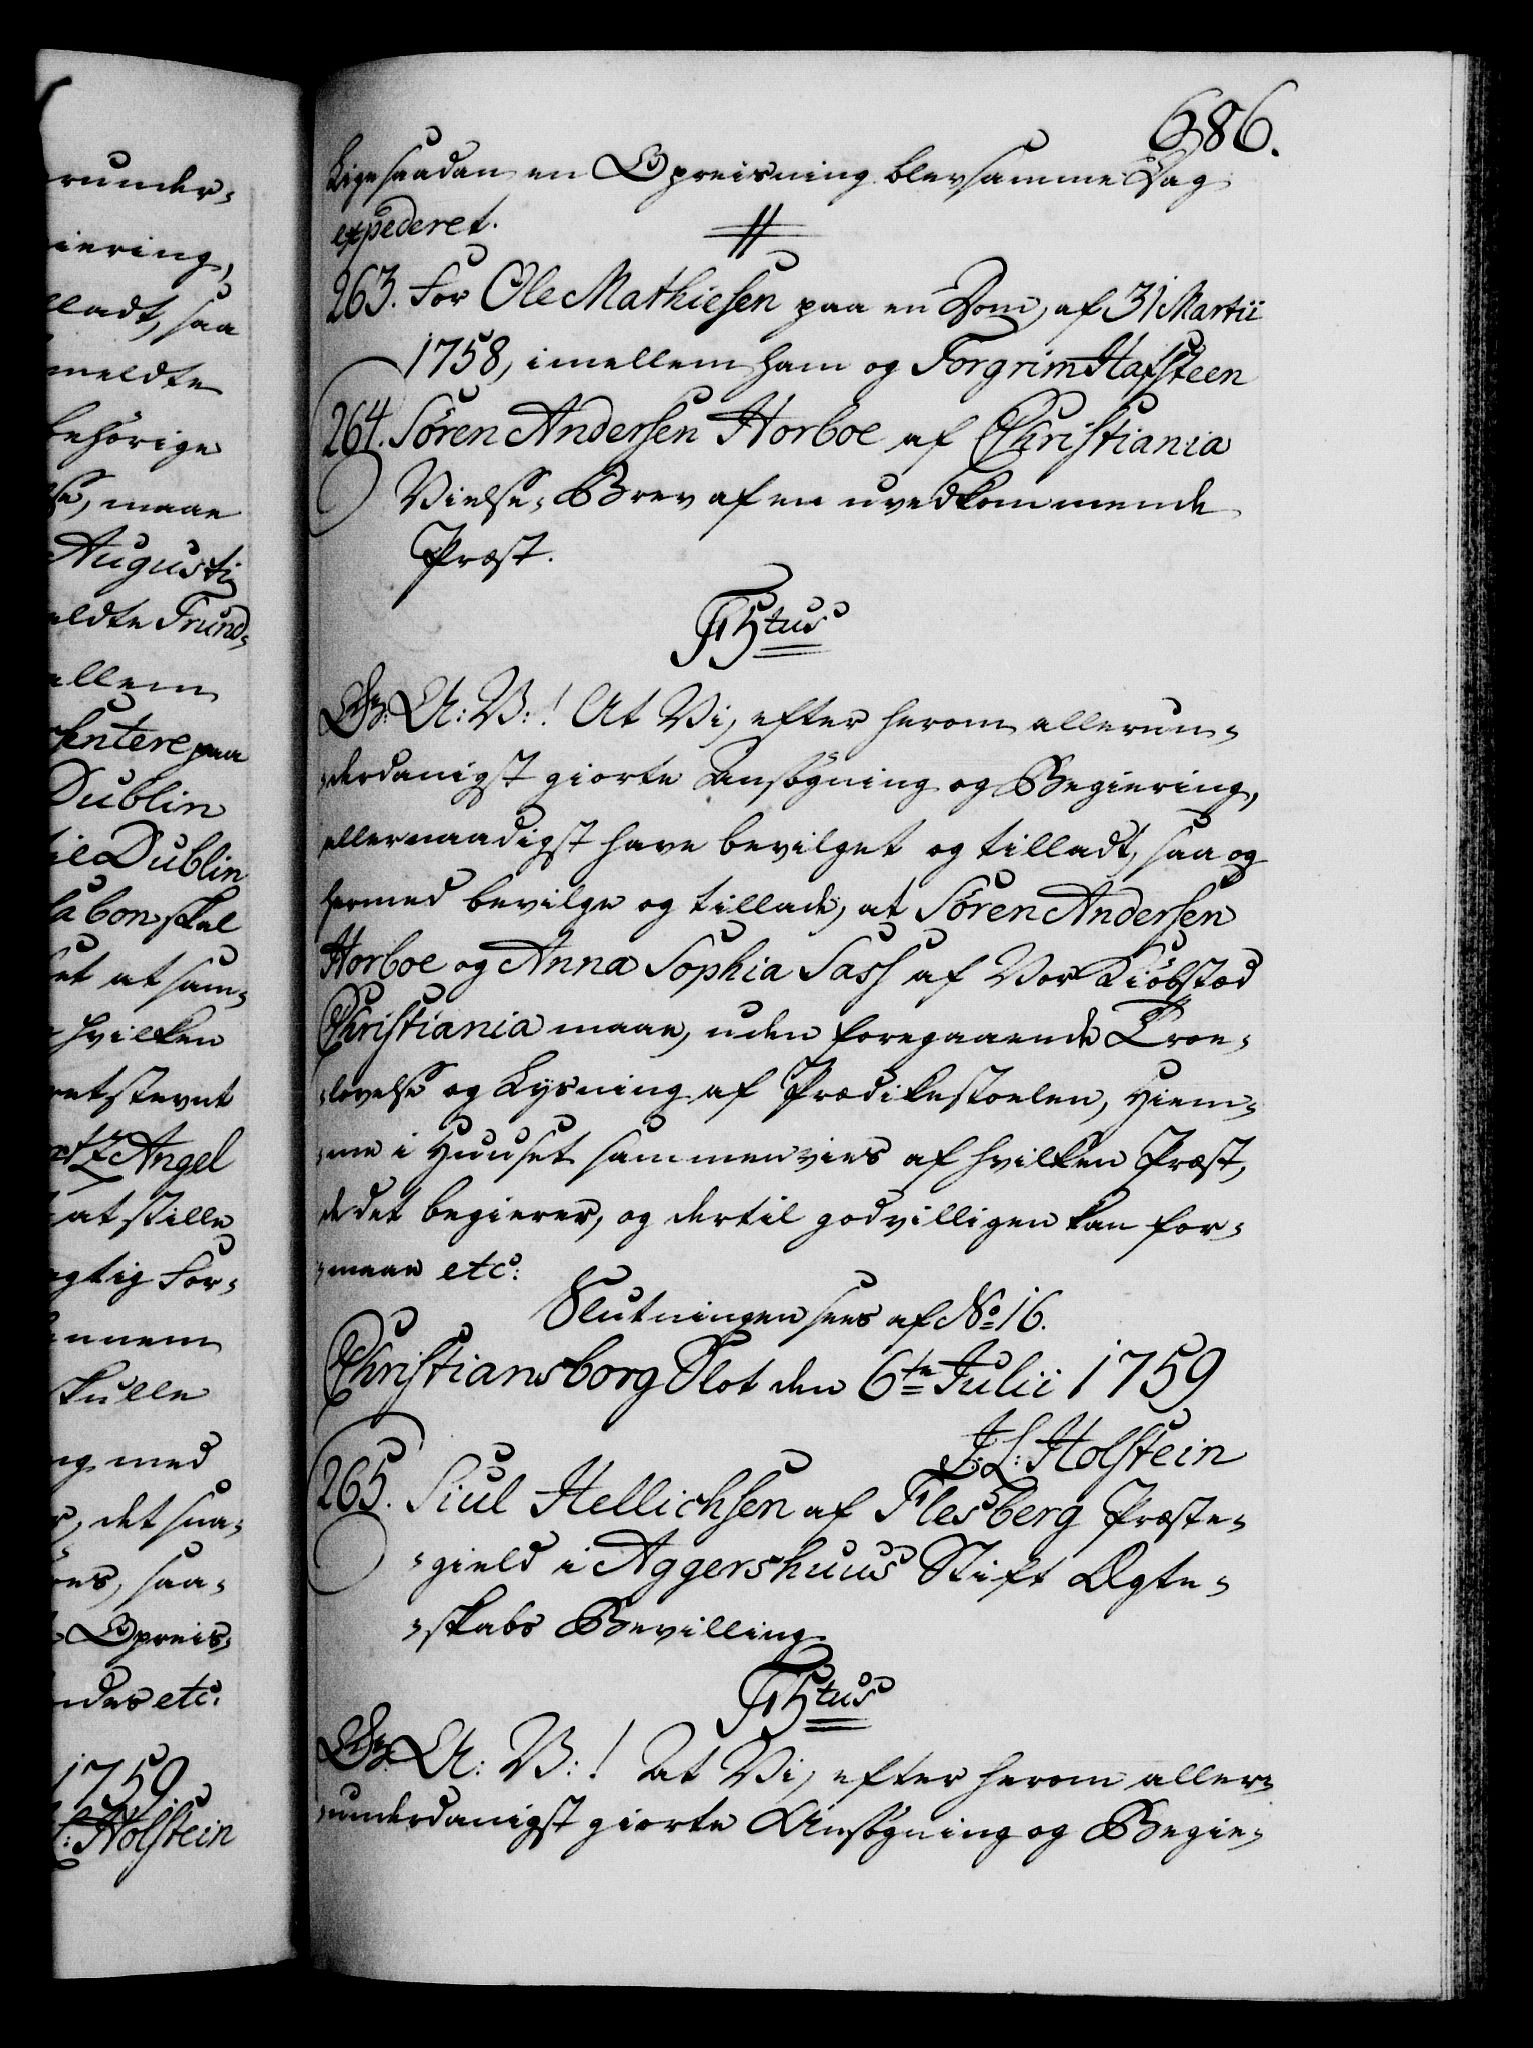 686.
Ligesaadan en Opreisning blev samme Dag
expederet.
263. For Ole Mathiesen paa en Dom, af 31 Martii
1758, imellem ham og Torgrim Hafsteen
264. Sören Andersen Horboe af Christiania
Vielse-Brev af en uvedkommende
Præst.
F 5tus
Gr: A: V:! At Vi, efter herom allerun-
-derdanigst giorte Ansögning og Begiering,
allernaadigst have bevilget og tilladt, saa og
hermed bevilge og tillade, at Sören Andersen
Horboe og Anna Sophia Sass af Vor Kiöbstad
Christiania maae, uden foregaaende Troe-
-lovelse og Lysning af Prædikestoelen, Hiem-
-me i Huuset sammenvies af hvilken Præst,
de det begierer, og dertil godvilligen kan for-
-maae etc:
Slutningen sees af No 16.
Christiansborg Slot den 6te Julii 1759
J: L: Holstein
265. Siul Hellichsen af Flesberg Præste-
-gield i Aggershuus Stift Ægte-
-skabs Bevilling
F 5tus
Gr: A: V:! At Vi, efter herom aller-
-underdanigst giorte Ansögning og Begie-
runder-
iering,
lladt, saa
meldte
behörige
se, maae
Augusti
eldte Trund-
ellem
sentere paa
Dublin
til Dublin
sabon skal
et at sam-
hvilken
retstevnt
Angel
at stille
gtig For-
ennem
skulle
og med
det saa-
es, saa-
Opreis-
ndes etc:
1759.
L: Holstein